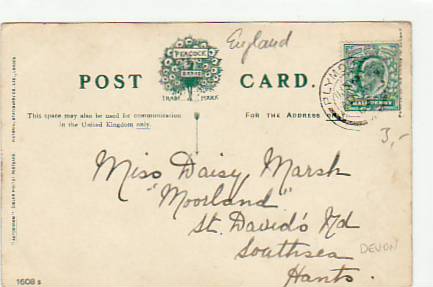 England
PEACOCK
BRAND
TRADE MARK
POST CARD.
This space may also be used for communication
in the United Kingdom only.
FOR THE ADDRESS ONLY
PLYMO
HALF PENNY
3,-
Miss Daisy Marsh
"Moorland"
St. David's Rd
Southsea
DEVON
Hants.
1608 s